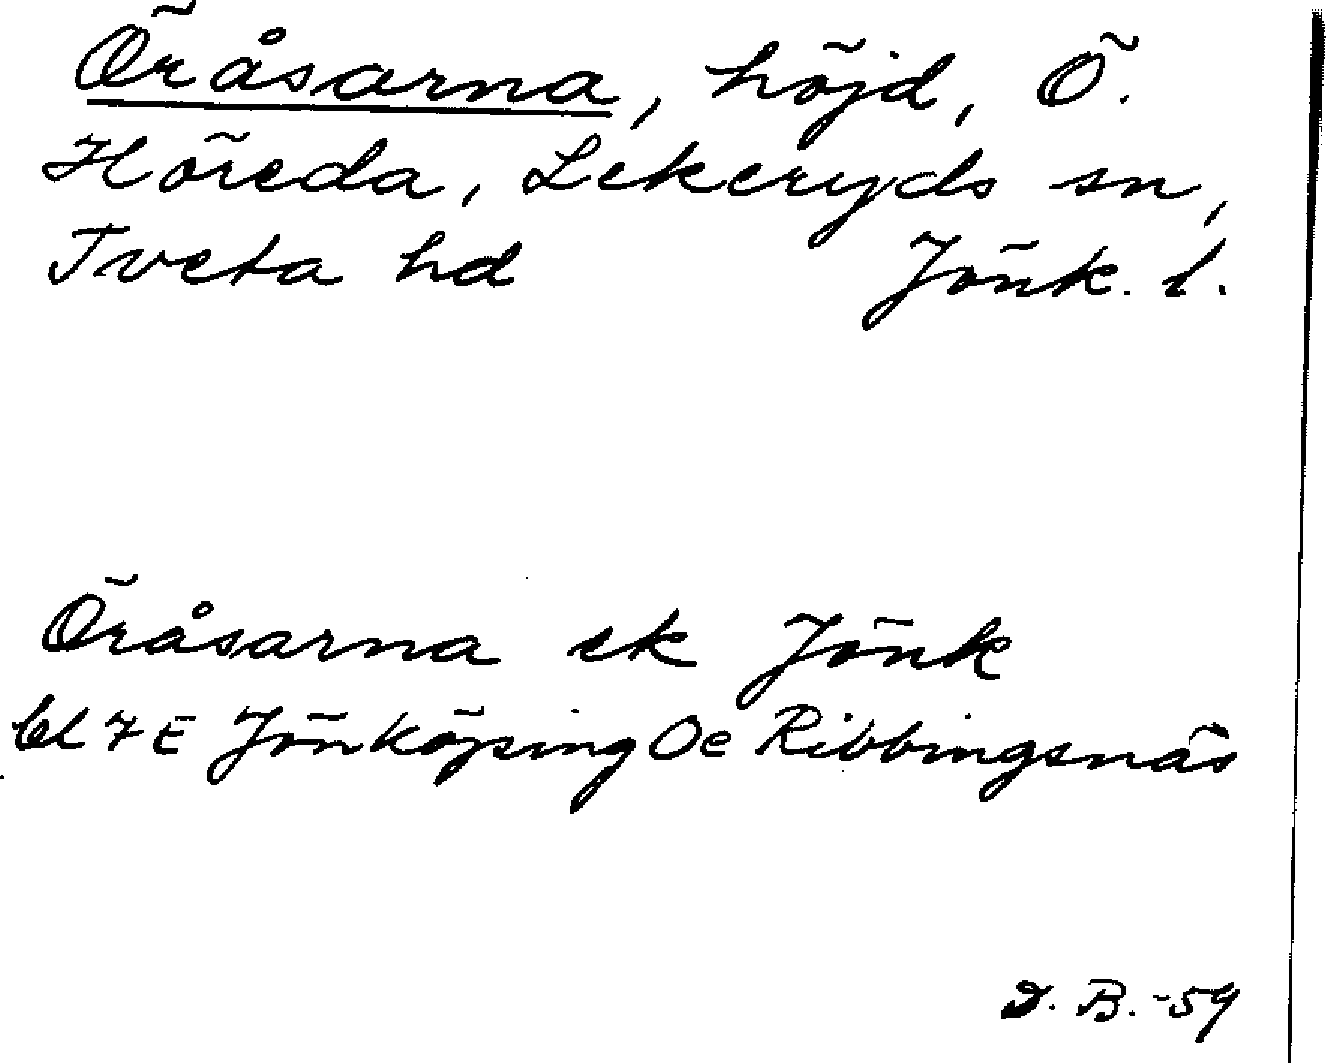 Öråsarna, höjd, Ö.
Höreda, Lekeryds sn,
Tveta hd Jönk. l.
Öråsarna ek Jönk
bl 7E Jönköping Oe Ribbingsnäs
D. B. -59